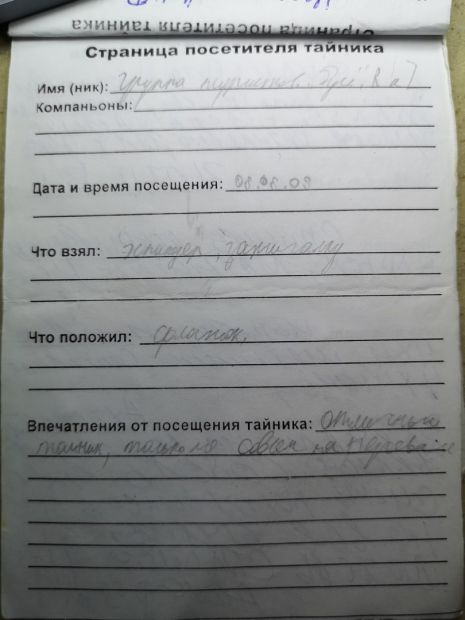 Страница посетителя тайника
Страница посетителя тайника
Имя (ник): группа туристов
Компаньоны:
Дата и время посещения: 08.08.09
Что взял: зажигалку
Что положил: флажок.
Впечатления от посещения тайника: Отличный
тайник, только не совсем на